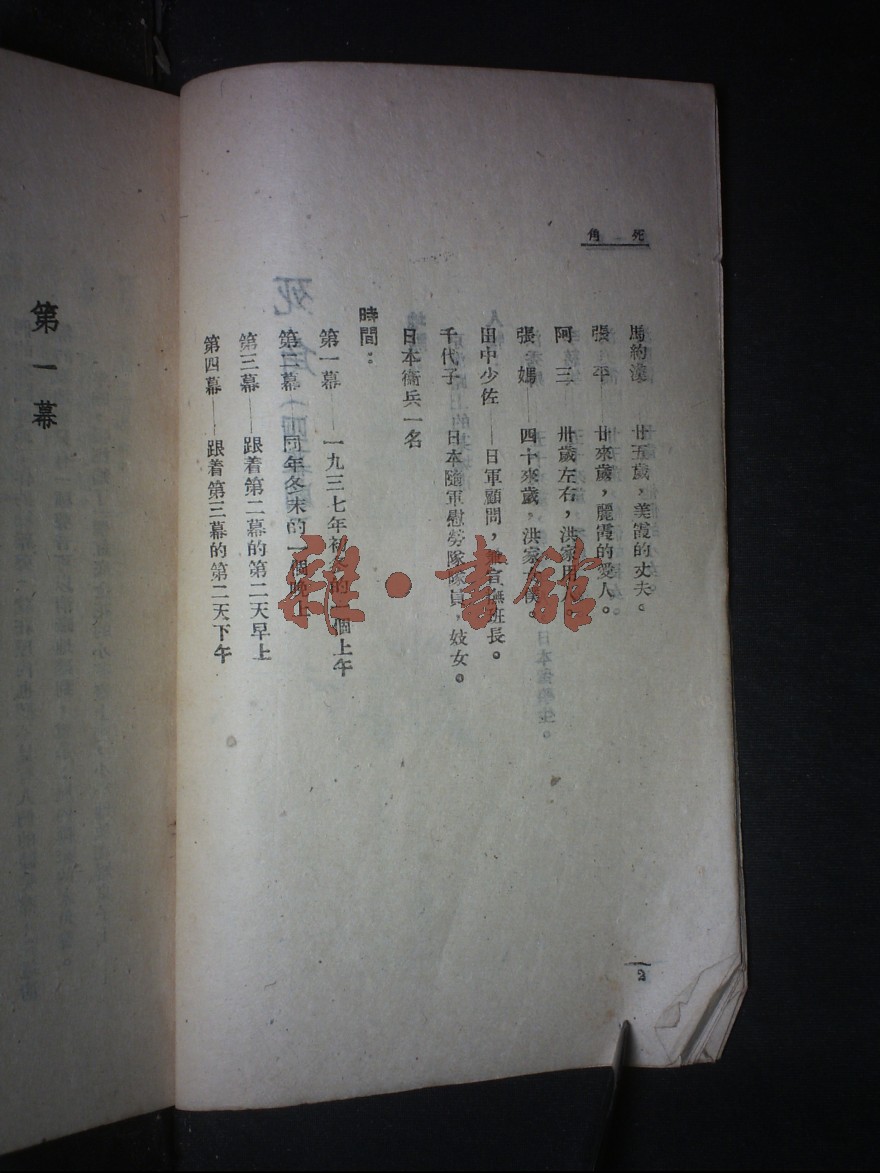 死角
馬約漢 廿五歲，美霞的丈夫。
張平——廿來歲，麗霞的愛人。
阿三 卅歲左右，洪家用人。
張媽——四十來歲，洪家女僕。
田中少佐——日軍顧問，兼宣撫班長。
千代子 日本隨軍慰勞隊隊員，妓女。
日本衞兵一名
時間：
第一幕——一九三七年初冬的一個上午
第二幕——同年冬末的一個晚上
第三幕——跟着第二幕的第二天早上
第四幕——跟着第三幕的第二天下午
2
第一幕
雜·書館